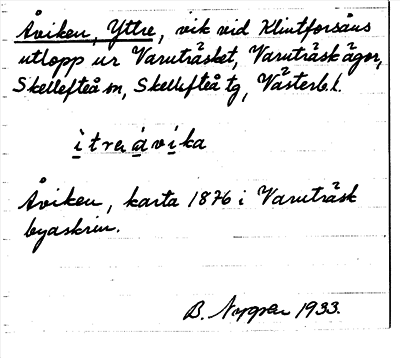 Åviken, Yttre, vik vid Klintforsåns
utlopp ur Varuträsket, Varuträsk ägor,
Skellefteå sn, Skellefteå tg, Västerb. l.
itra åvika
Åviken, karta 1876 i Varuträsk
byaskrin.
B. Nygren 1933.